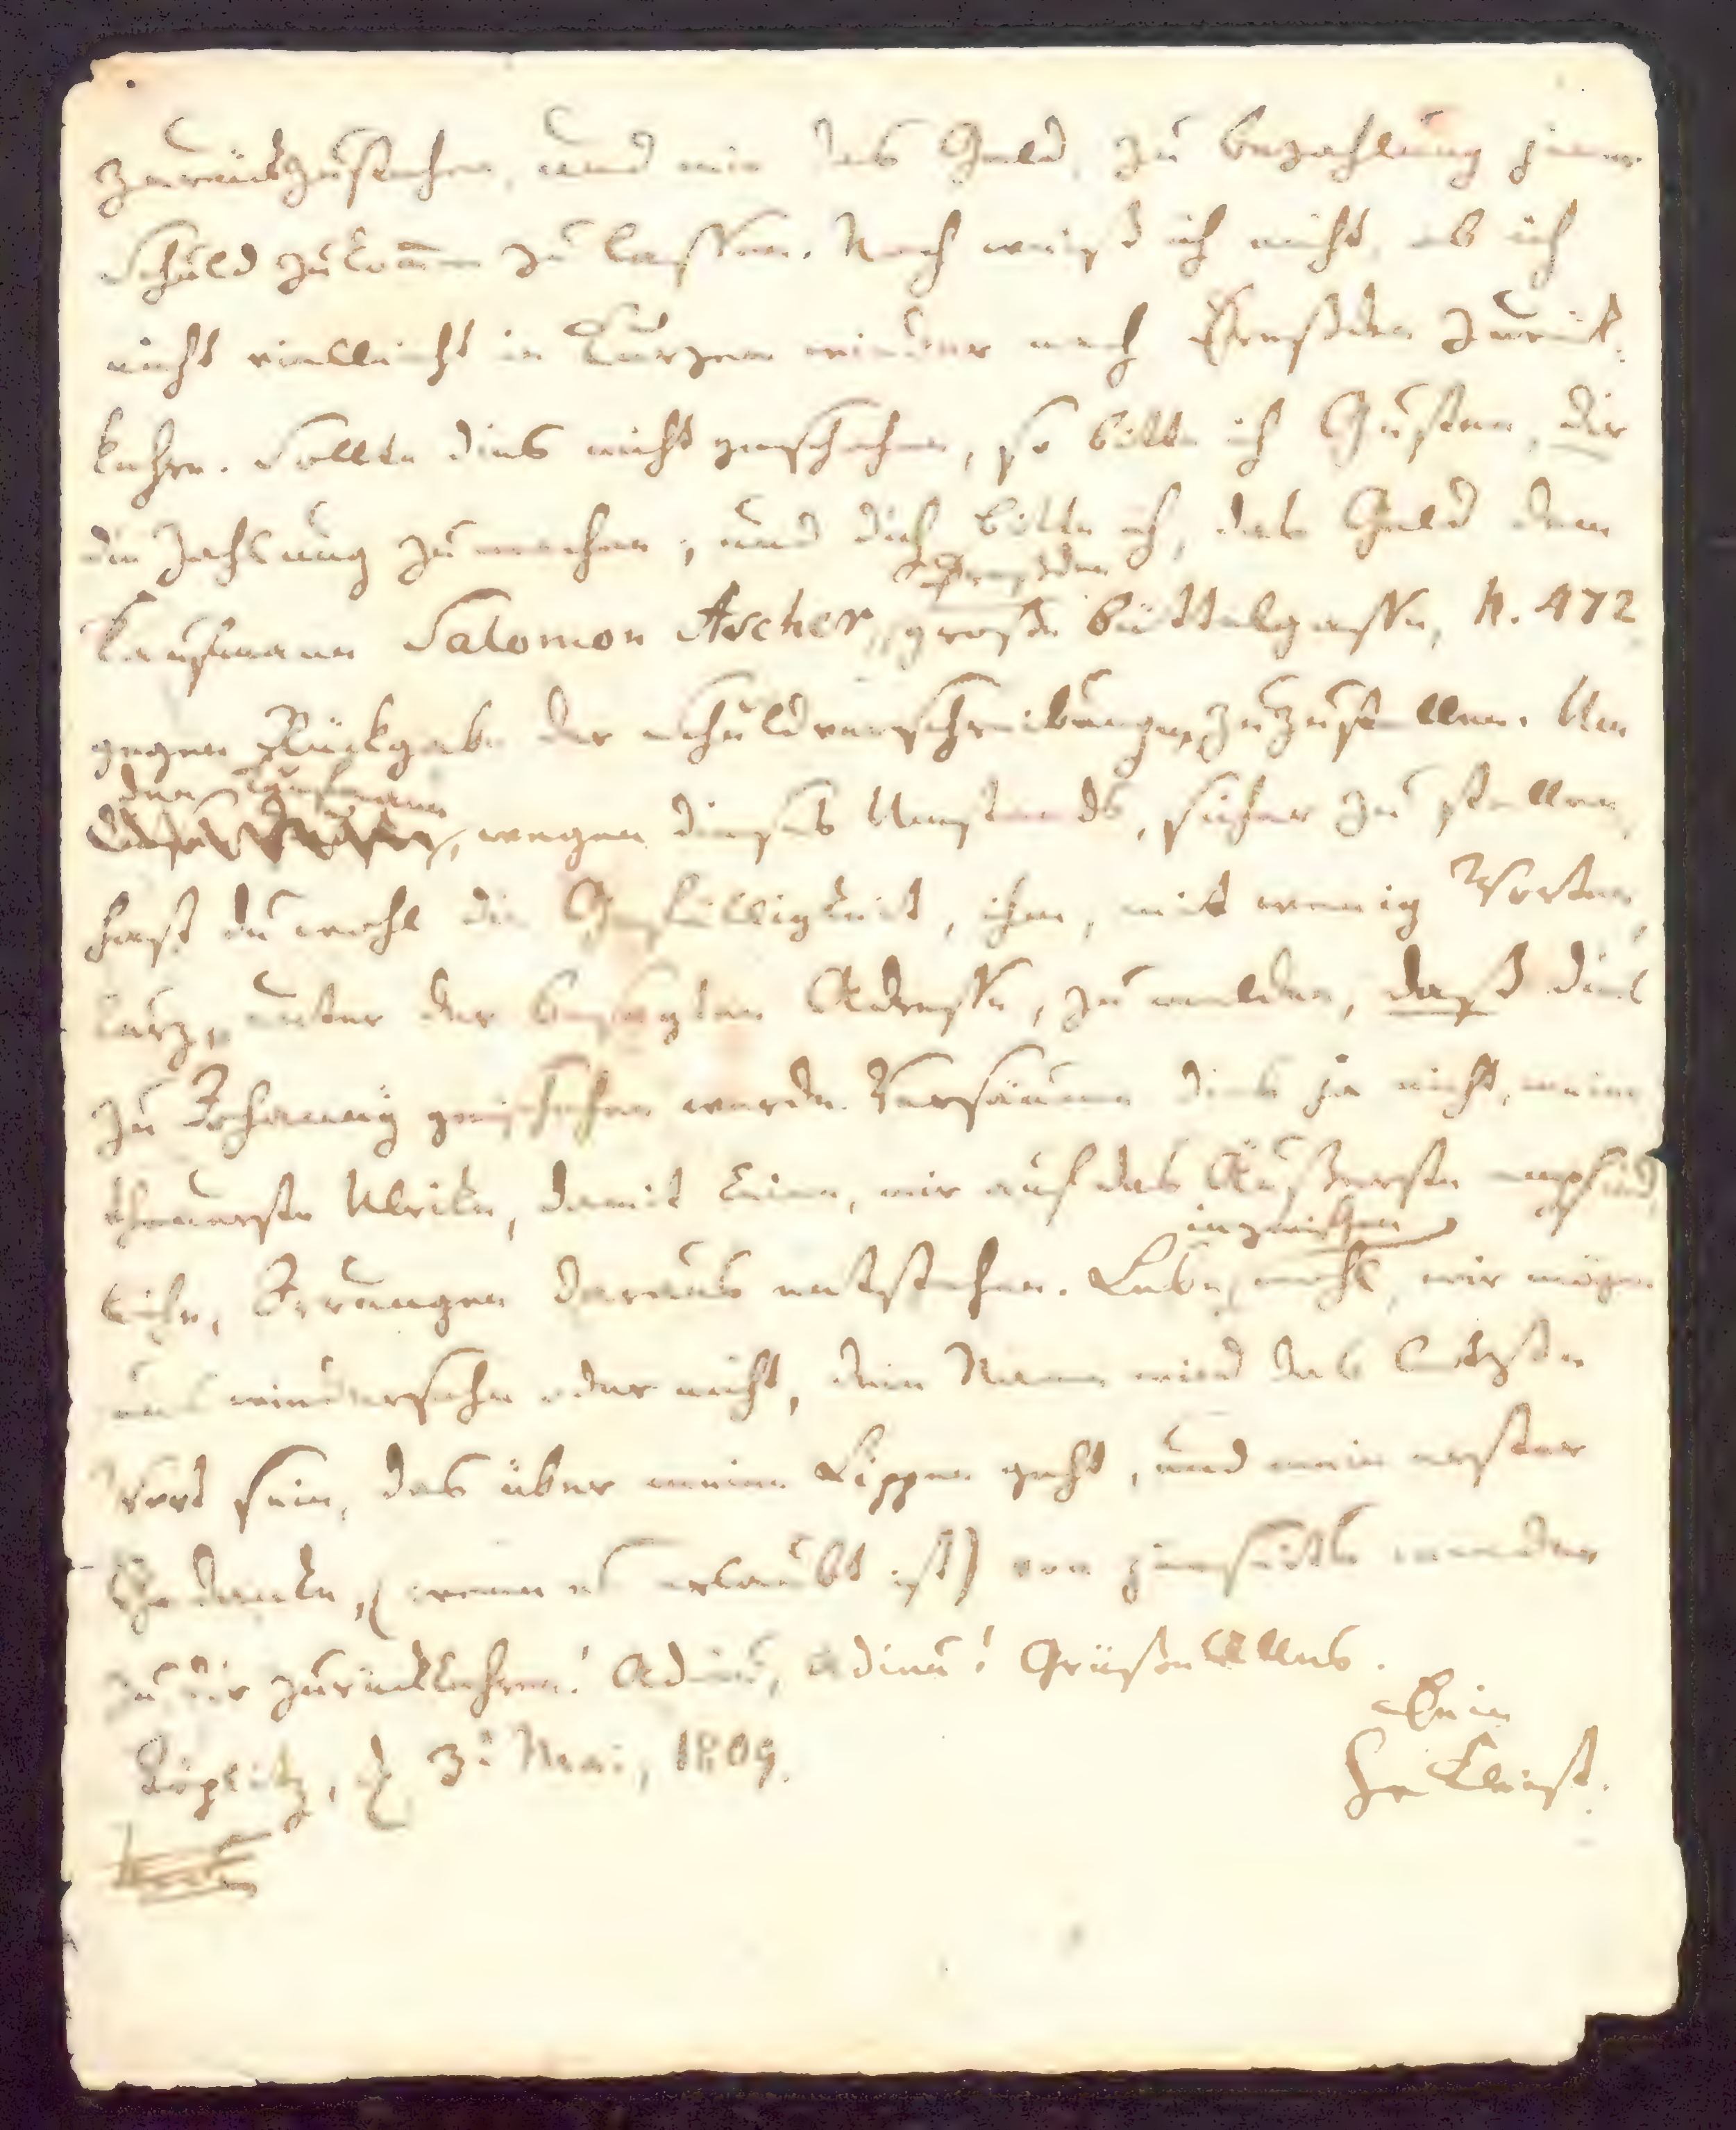 zurückzustehen, und mir das Geld, zu Bezahlung jener
Schuld zukom̅en zu lassen. Noch weiß ich nicht, ob ich
nicht vielleicht in Kurzem wieder nach Dresden zurück-
kehre. Sollte dies nicht geschehen, so bitte ich Gusten, dir
die Zahlung zu machen, und dich bitte ich, das Geld dem
Dresden
Kaufmann Salomon Ascher, große Büttelgasse, N. 472
gegen Rückgabe der Schuldverschreibungen, zuzustellen. Um
den Kaufmann
wegen dieses Umstands, sicher zu stellen,
hast du wohl die Gefälligkeit, ihm, mit wenig Worten,
kurz, unter der besagten Adresse, zu melden, daß dies
zu Johanny geschehen werde. Versäume dies ja nicht, meine
theuerste Ulrike, damit keine, mir auf das Äußerste empfind-
inzwischen
liche, Irrungen daraus entstehen. Lebe wohl, wir mögen
uns wiedersehn oder nicht, dein Name wird das letzte
Wort sein, das über meine Lippen geht, und mein erster
Gedanke, (wenn es erlaubt ist) von jenseits wieder
zu dir zurückkehren! Adieu, adieu! Grüße Alles.
Dein
Töplitz, d 3t Mai, 1809.
H v Kleist.